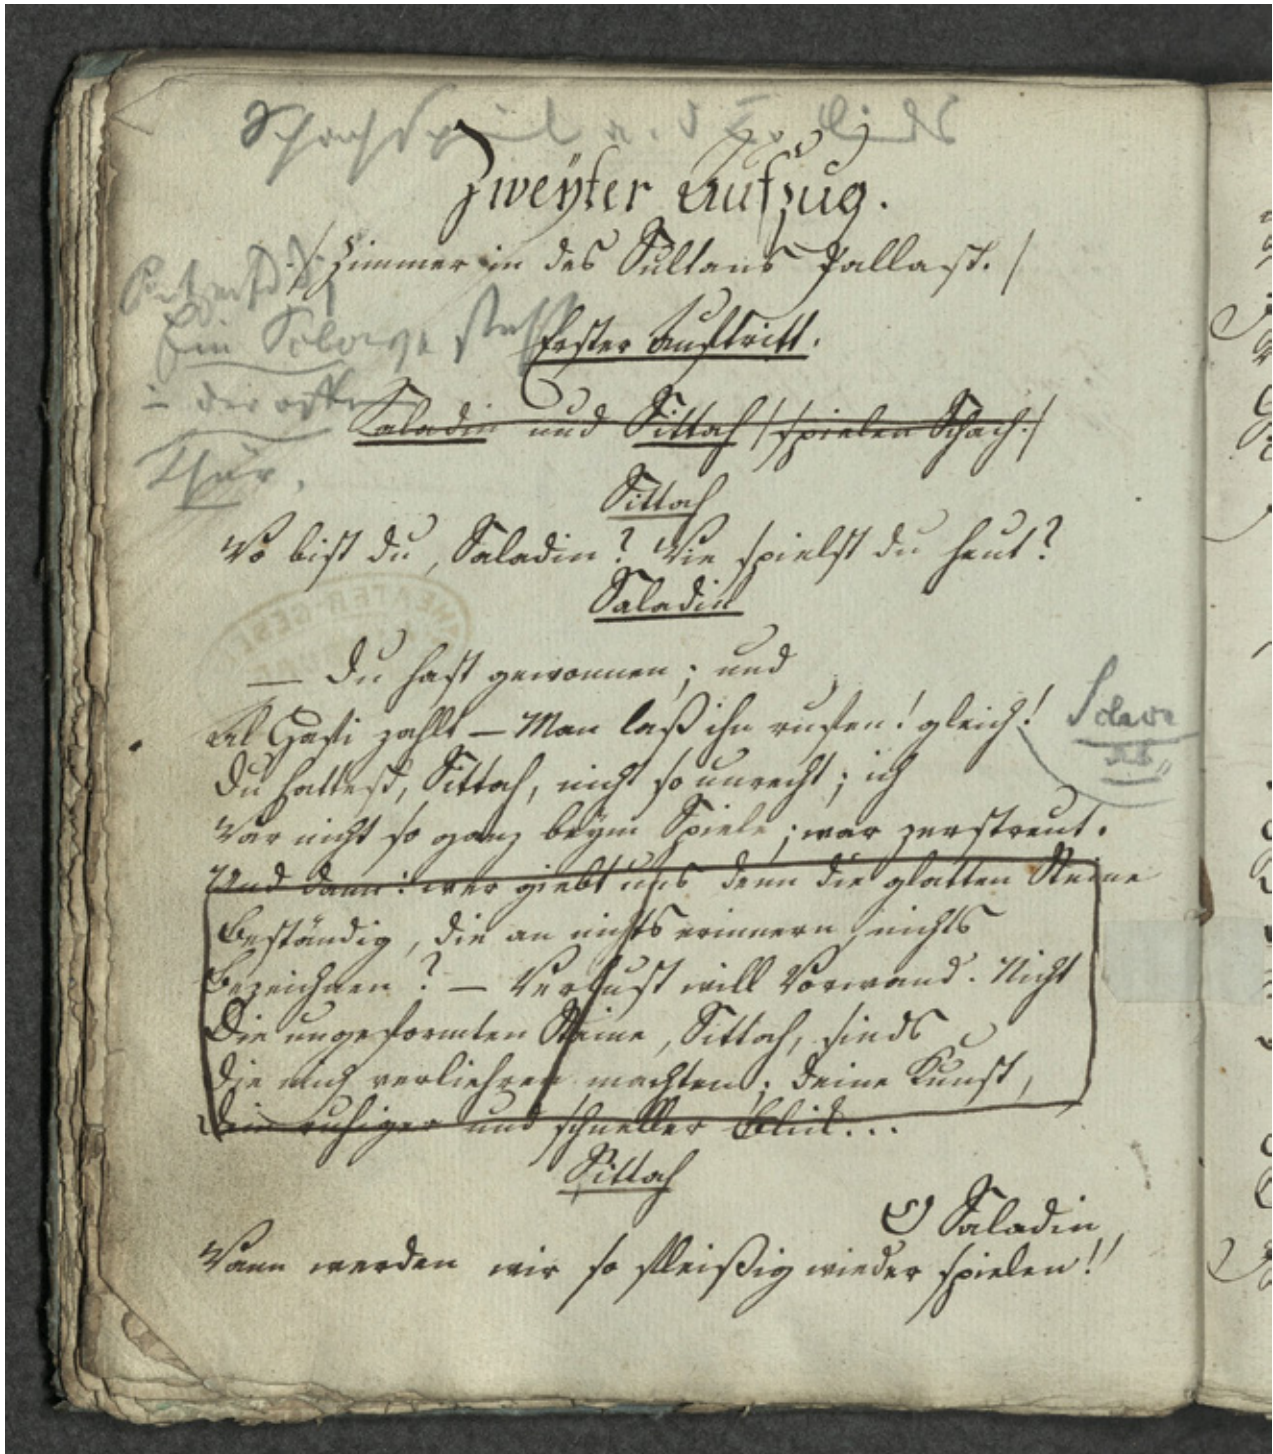 Schachspiel
Zweyter Aufzug.
/: Zimmer in des Sultans Pallast. /
Ein Sclave steht
in der offnen
Thür.
Erster Auftritt.
Saladin und Sittah /: spielen Schach. /
Sittah
Wo bist du, Saladin? Wie spielst du heut?
Saladin
— Du hast gewonnen; und
Al Hafi zahlt — Man laß ihn rufen! gleich!
Sclave
ab
Du hattest, Sittah, nicht so unrecht; ich
War nicht so ganz beym Spiele; war zerstreut.
Und dann: wer giebt uns denn die glatten Steine
Beständig, die an nichts erinnern, nichts
Bezeichnen? — Verlust will Vorwand. Nicht
Die ungeformten Steine, Sittah, sinds
Die mich verliehren machten; deine Kunst,
Dein ruhiger und schneller Blick...
Sittah
O Saladin,
Wann werden wir so fleißig wieder spielen!